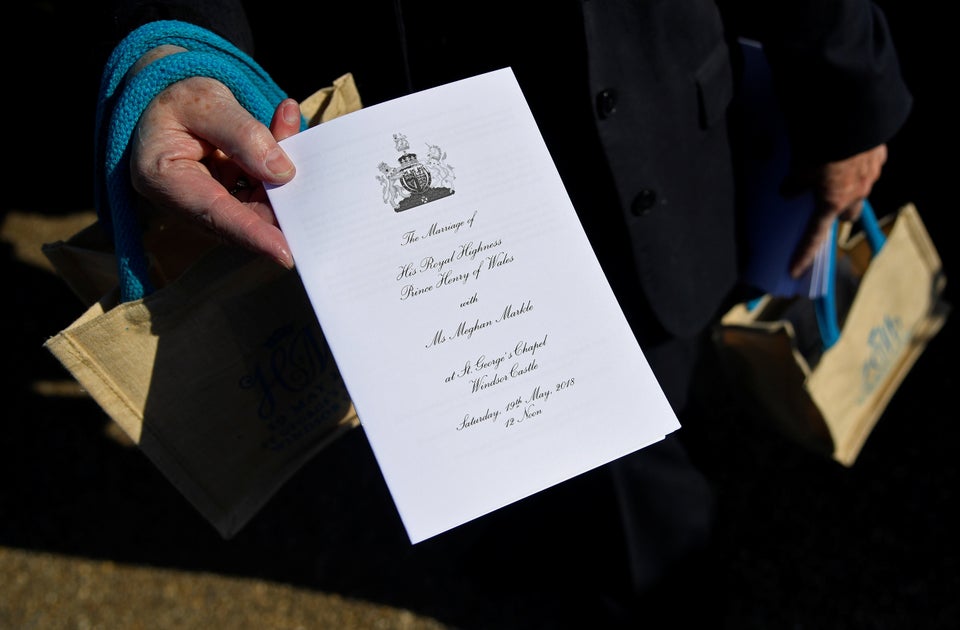 The Marriage of
His Royal Highness
Prince Henry of Wales
with
Ms Meghan Markle
at St. George's Chapel
Windsor Castle
Saturday, 19th May, 2018
12 Noon
HM
19 MAY
WINDSOR
HM